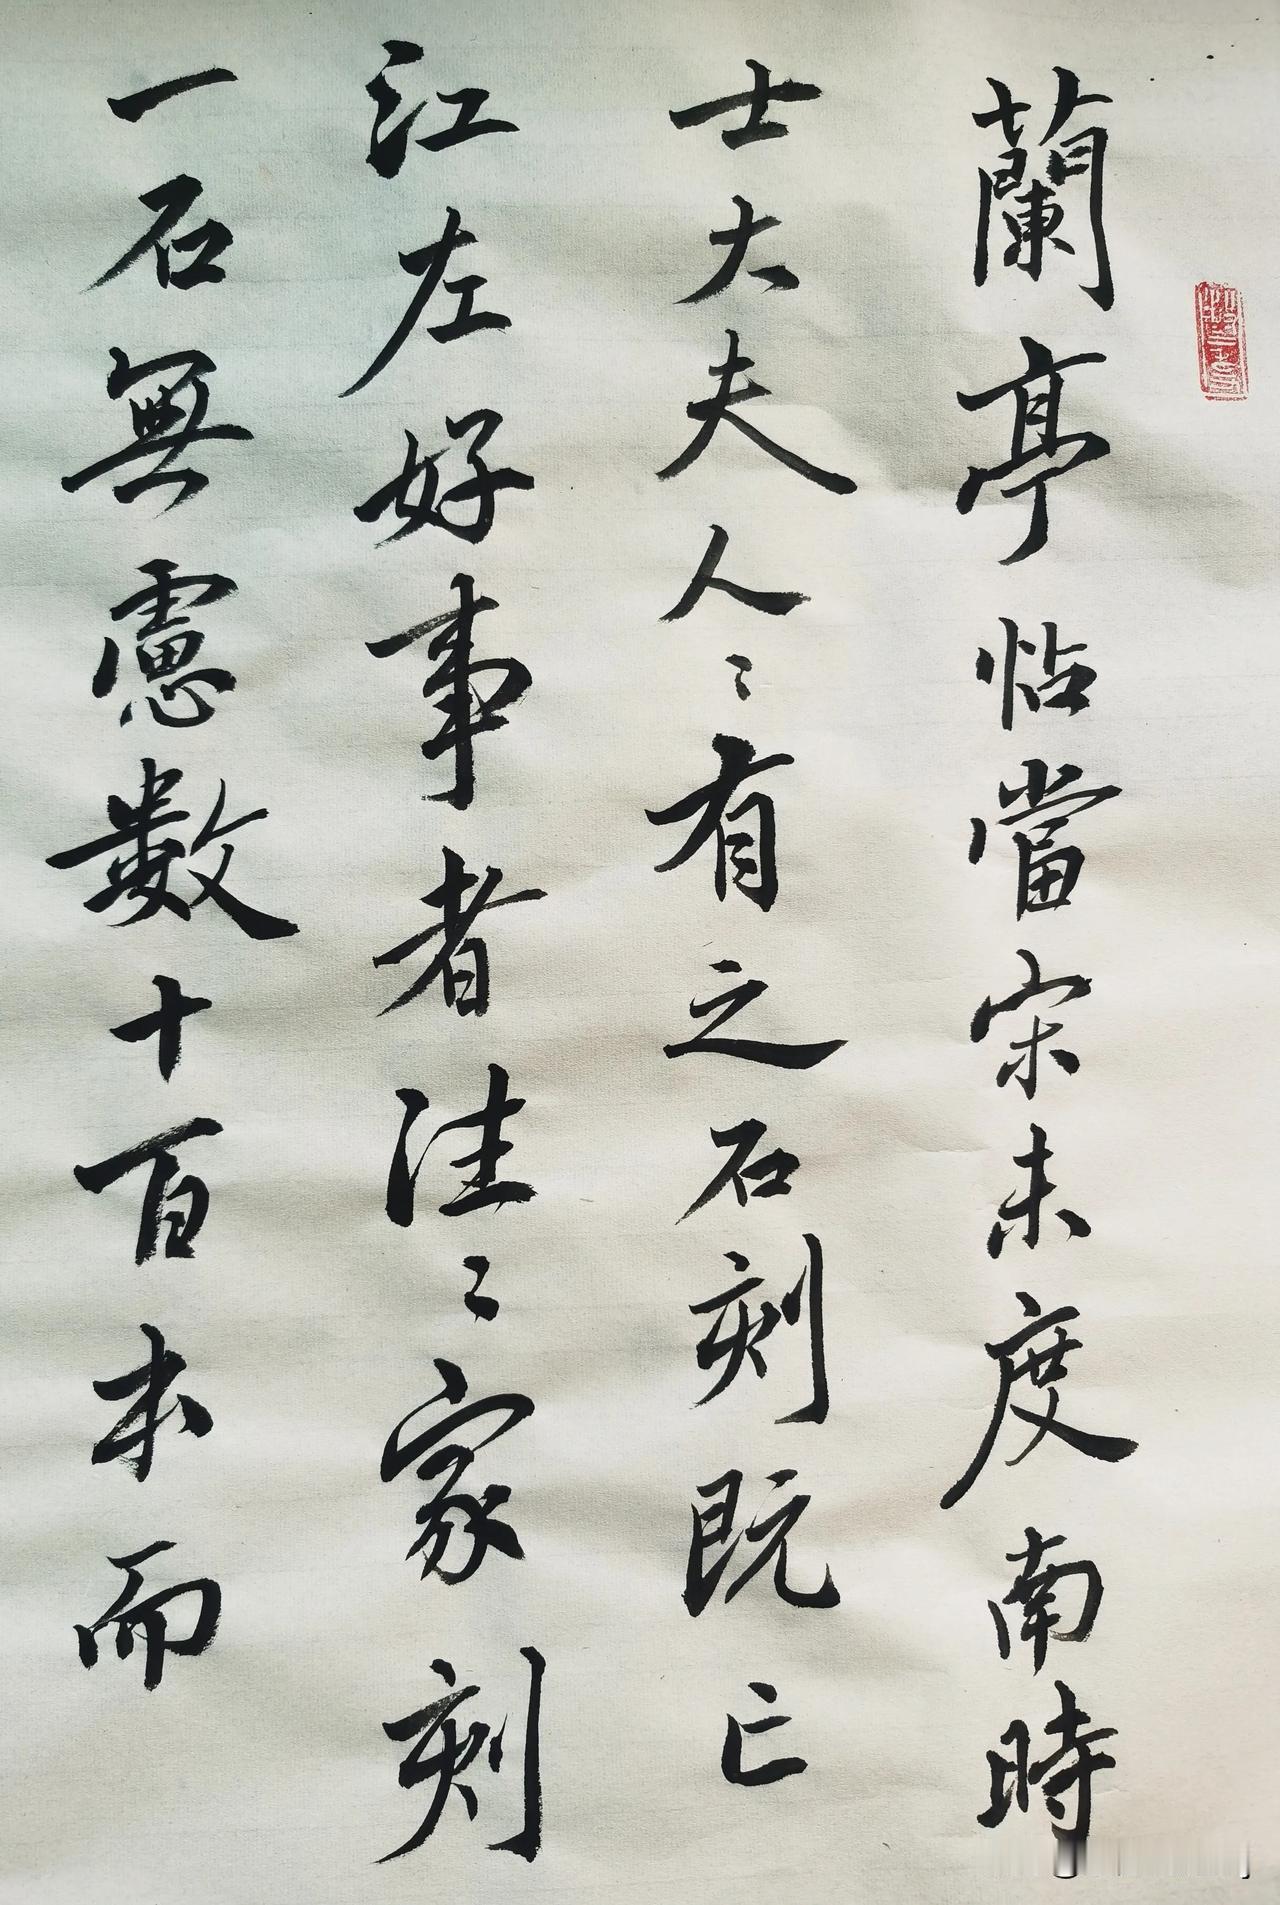 蘭亭帖當宋未度南時
士大夫人〻有之石刻既亡
江左好事者往〻家刻
一石無慮数十百本而